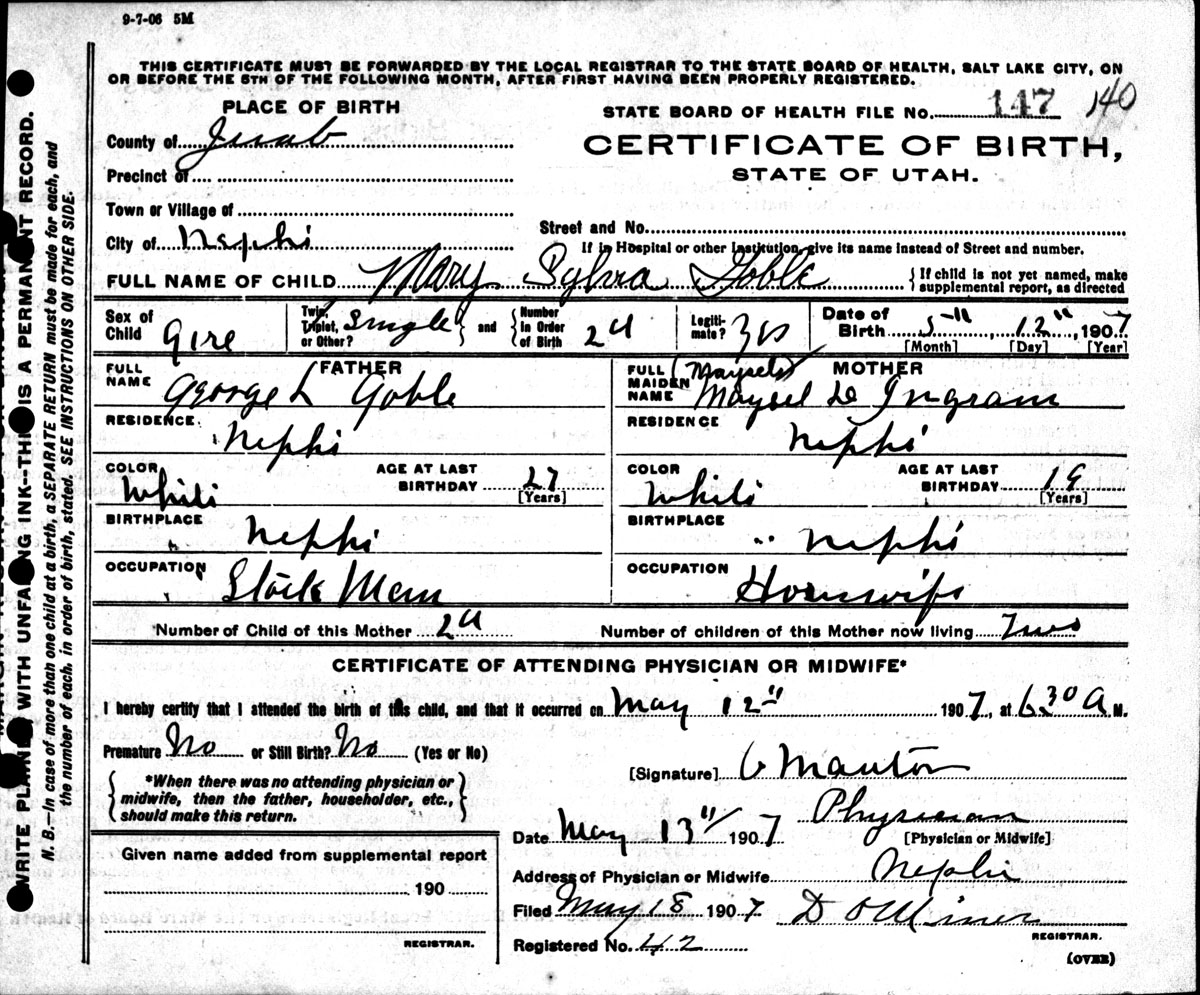 9-7-06 5M
THIS CERTIFICATE MUST BE FORWARDED BY THE LOCAL REGISTRAR TO THE STATE BOARD OF HEALTH, SALT LAKE CITY, ON
OR BEFORE THE 5TH OF THE FOLLOWING MONTH, AFTER FIRST HAVING BEEN PROPERLY REGISTERED.
PLACE OF BIRTH
STATE BOARD OF HEALTH FILE No. 147 140
County of Juab
CERTIFICATE OF BIRTH,
Precinct of
STATE OF UTAH.
Town or Village of
Street and No.
City of Nephi
If in Hospital or other Institution, give its name instead of Street and number.
FULL NAME OF CHILD Mary Sylvia Goble {If child is not yet named, make supplemental report, as directed
Sex of Child Girl Twin, Triplet, or Other? Single } and { Number In Order of Birth 2d Legiti-mate? Yes Date of Birth 5", 12", 1907
[Month] [Day] [Year]
FATHER MOTHER
FULL NAME George L Goble FULL MAIDEN NAME Maysel De Ingram
RESIDENCE Nephi RESIDENCE Nephi
COLOR White AGE AT LAST BIRTHDAY 27 [Years] COLOR White AGE AT LAST BIRTHDAY 19 [Years]
BIRTHPLACE " Nephi BIRTHPLACE " Nephi
OCCUPATION Stock Man OCCUPATION Housewife
Number of Child of this Mother 2d Number of children of this Mother now living Two
CERTIFICATE OF ATTENDING PHYSICIAN OR MIDWIFE*
I hereby certify that I attended the birth of this child, and that it occurred on May 12" 1907, at 6 30 A M.
Premature No or Still Birth? No (Yes or No)
[Signature] Manton
{*When there was no attending physician or
midwife, then the father, householder, etc.,
should make this return.}
Physician
Date May 13" 1907 [Physician or Midwife]
Given name added from supplemental report
Address of Physician or Midwife Nephi
190
Filed May 18 1907 D O Miner
REGISTRAR. REGISTRAR.
Registered No. 42
(OVER)
WRITE PLAINLY WITH UNFADING INK--THIS IS A PERMANENT RECORD.
N. B.—In case of more than one child at a birth, a SEPARATE RETURN must be made for each, and
the number of each, in order of birth, stated. SEE INSTRUCTIONS ON OTHER SIDE.